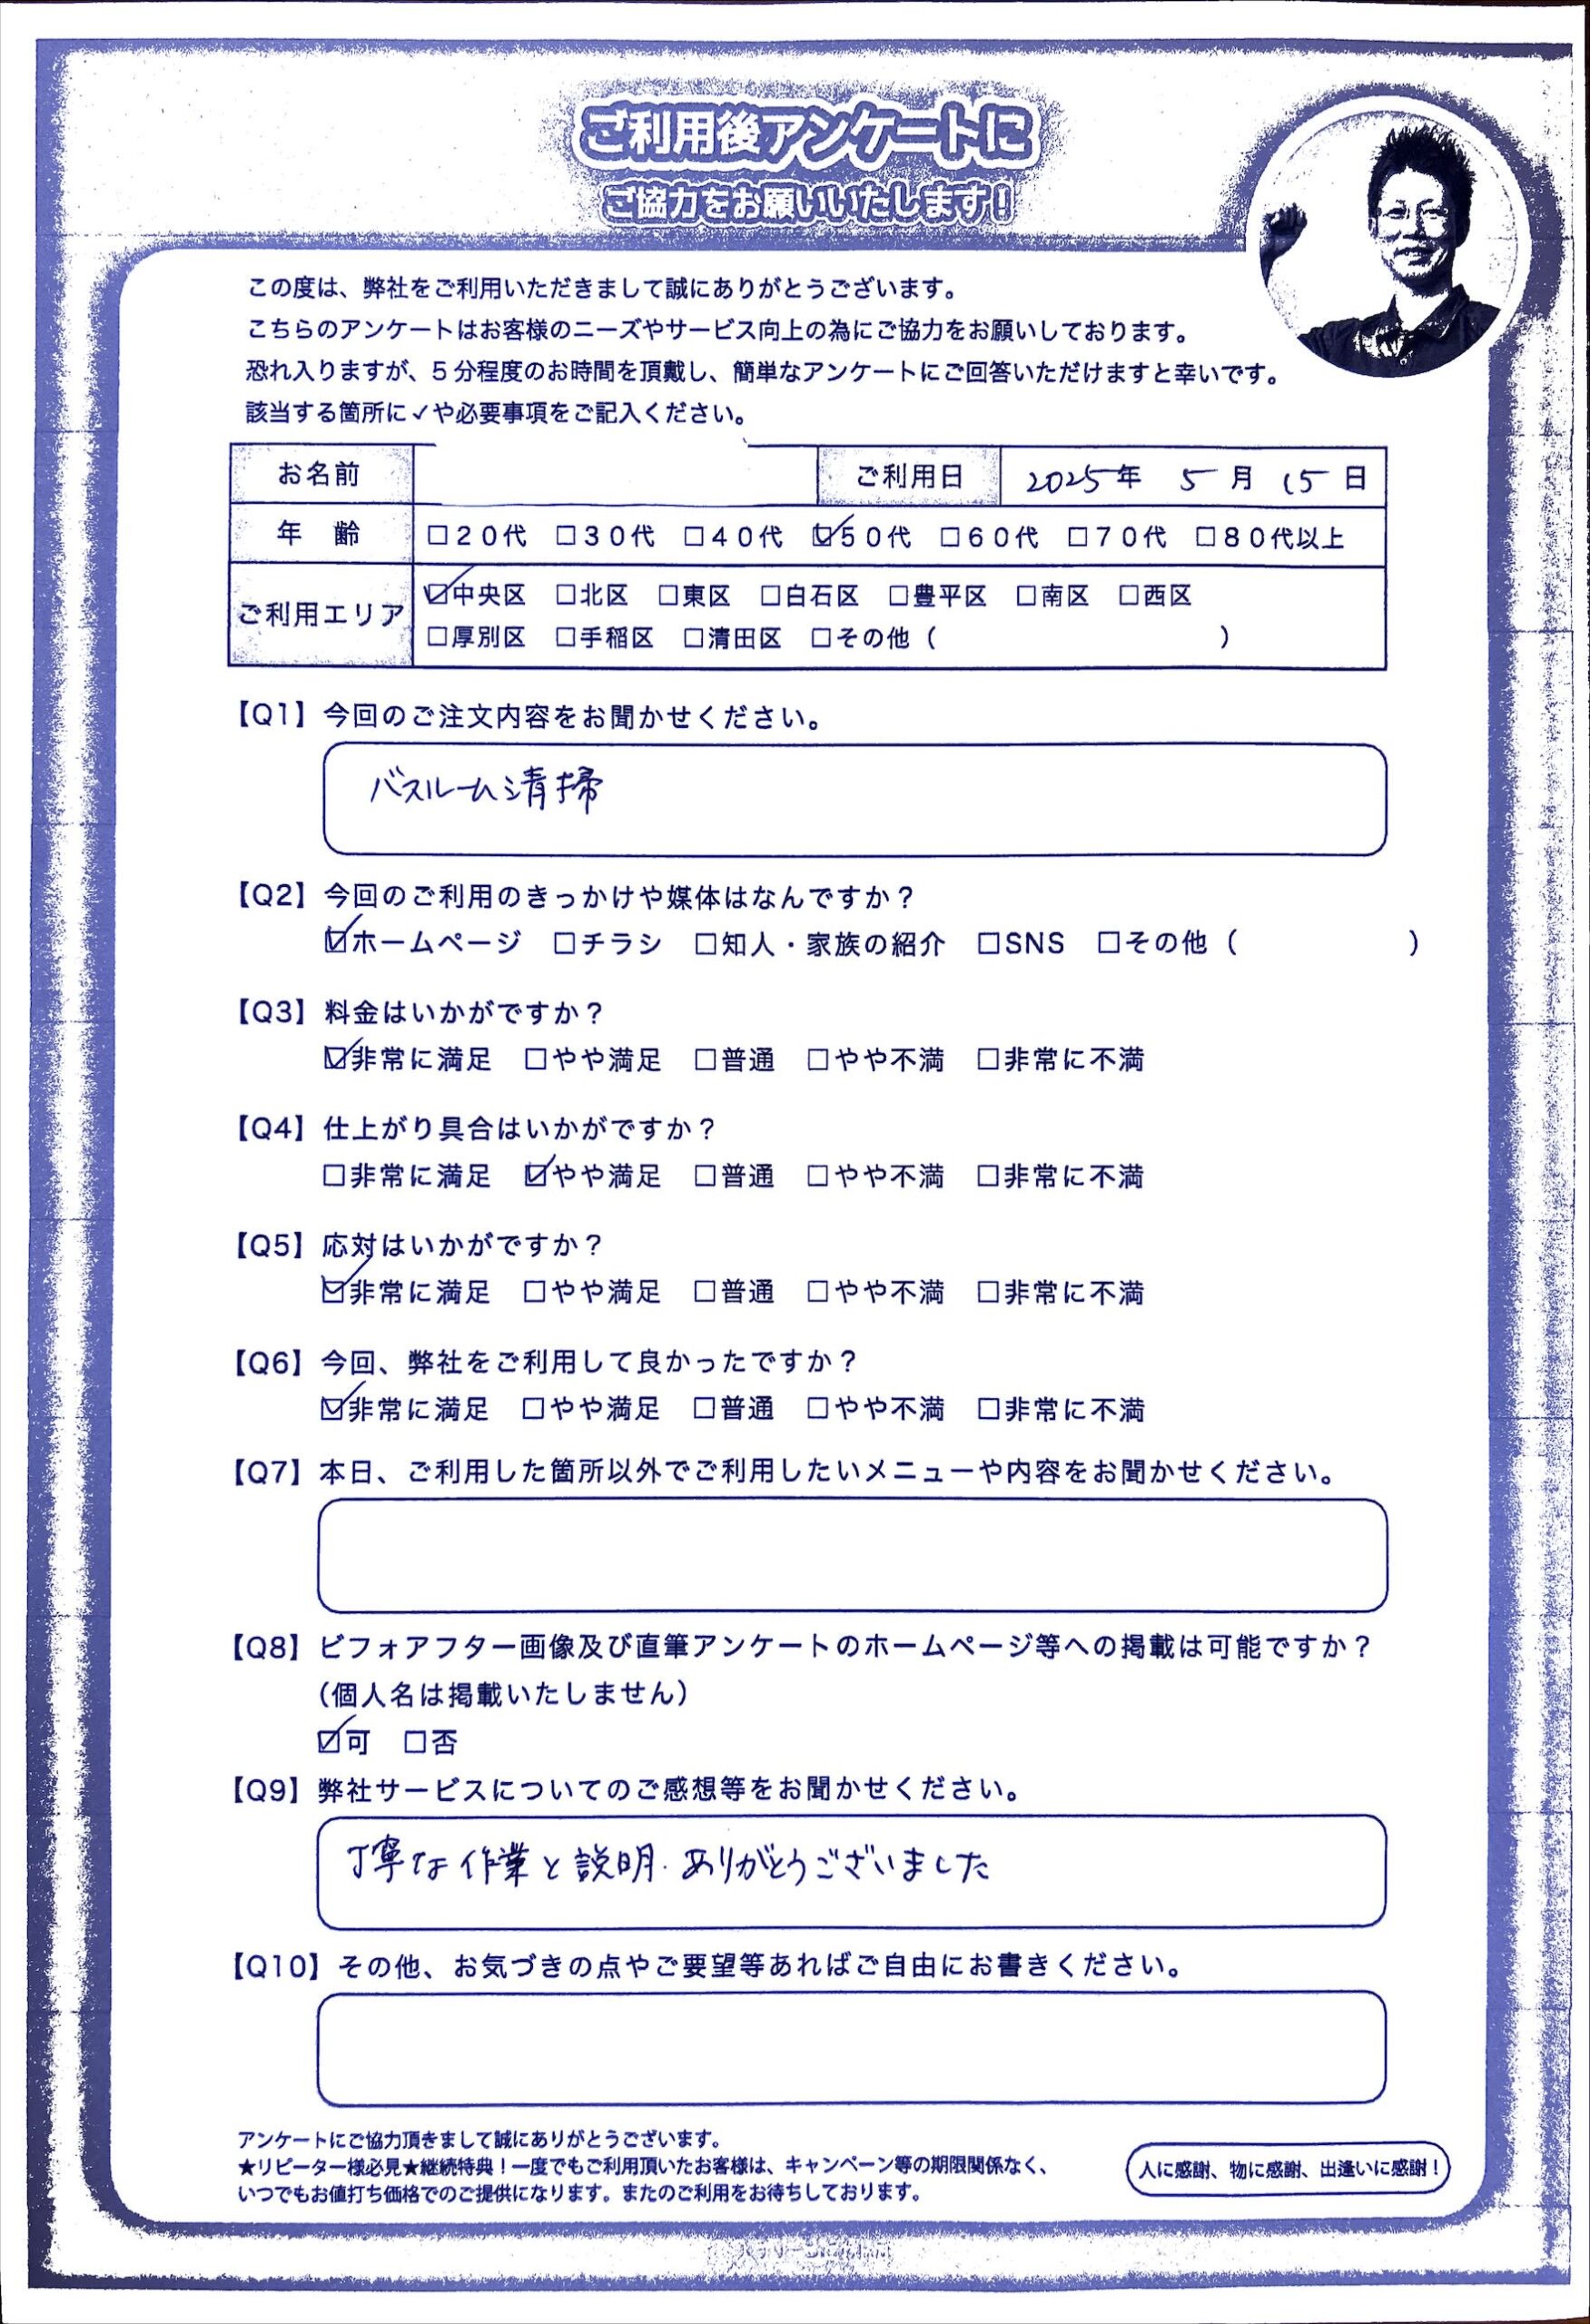 ご利用後アンケートに
ご協力をお願いいたします！
この度は、弊社をご利用いただきまして誠にありがとうございます。
こちらのアンケートはお客様のニーズやサービス向上の為にご協力をお願いしております。
恐れ入りますが、5分程度のお時間を頂戴し、簡単なアンケートにご回答いただけますと幸いです。
該当する箇所に✓や必要事項をご記入ください。
お名前 ご利用日 2025年 5月 15日
年 齢 □20代 □30代 □40代 ☑50代 □60代 □70代 □80代以上
ご利用エリア ☑中央区 □北区 □東区 □白石区 □豊平区 □南区 □西区
□厚別区 □手稲区 □清田区 □その他（ ）
【Q1】今回のご注文内容をお聞かせください。
バスルーム清掃
【Q2】今回のご利用のきっかけや媒体はなんですか？
☑ホームページ □チラシ □知人・家族の紹介 □SNS □その他（ ）
【Q3】料金はいかがですか？
☑非常に満足 □やや満足 □普通 □やや不満 □非常に不満
【Q4】仕上がり具合はいかがですか？
□非常に満足 ☑やや満足 □普通 □やや不満 □非常に不満
【Q5】応対はいかがですか？
☑非常に満足 □やや満足 □普通 □やや不満 □非常に不満
【Q6】今回、弊社をご利用して良かったですか？
☑非常に満足 □やや満足 □普通 □やや不満 □非常に不満
【Q7】本日、ご利用した箇所以外でご利用したいメニューや内容をお聞かせください。
【Q8】ビフォアフター画像及び直筆アンケートのホームページ等への掲載は可能ですか？
（個人名は掲載いたしません）
☑可 □否
【Q9】弊社サービスについてのご感想等をお聞かせください。
丁寧な作業と説明．ありがとうございました
【Q10】その他、お気づきの点やご要望等あればご自由にお書きください。
アンケートにご協力頂きまして誠にありがとうございます。
★リピーター様必見★継続特典！一度でもご利用頂いたお客様は、キャンペーン等の期限関係なく、
いつでもお値打ち価格でのご提供になります。またのご利用をお待ちしております。
人に感謝、物に感謝、出逢いに感謝！